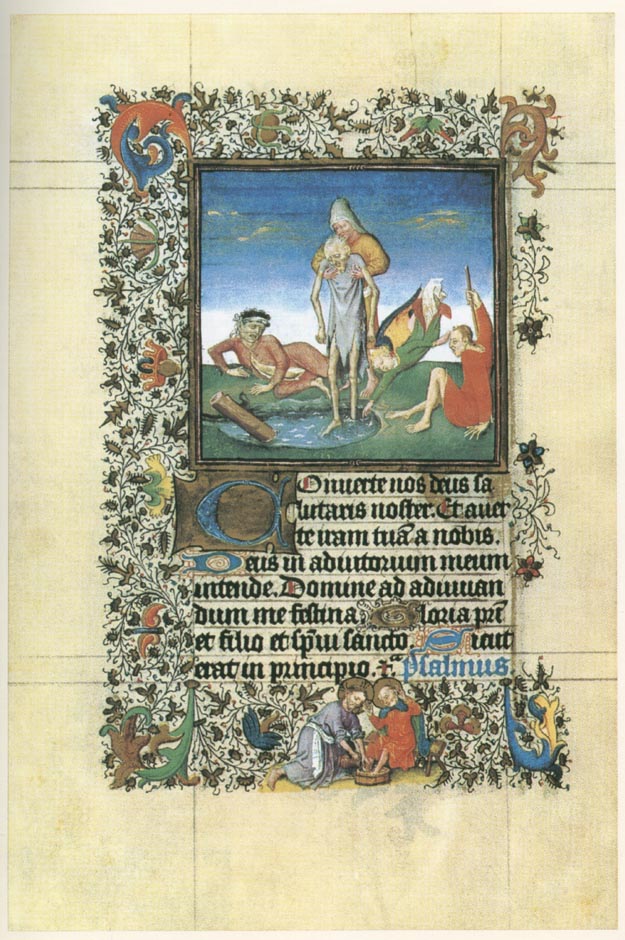 Onuerte nos deus sa
lutaris noster. Et auer
te iram tuā a nobis.
Deus in adiutorium meum
intende. Domine ad adiuuan
dum me festina Gloria pr̄i
et filio et sp̄ui sancto. Sicut
erat in principio. añ psalmus